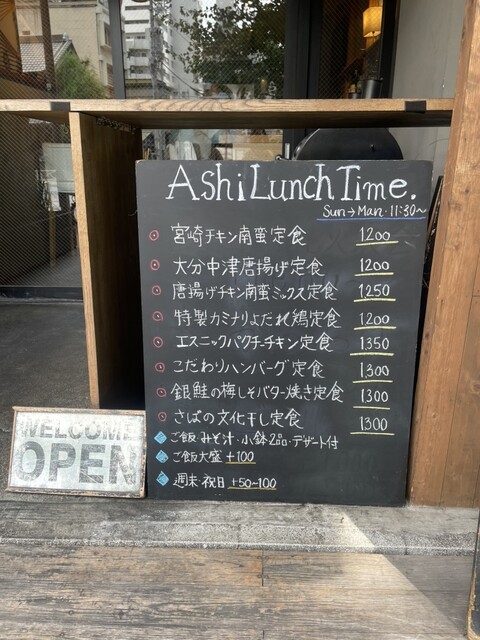 Ashi Lunch Time.
Sun→Man・11:30~
宮崎チキン南蛮定食 1200
大分中津唐揚げ定食 1200
唐揚げチキン南蛮ミックス定食 1250
特製カミナリよだれ鶏定食 1200
エスニックパクチーチキン定食 1350
こだわりハンバーグ定食 1300
銀鮭の梅しそバター焼き定食 1300
さばの文化干し定食 1300
ご飯・みそ汁・小鉢2品・デザート付
ご飯大盛 +100
週末・祝日 +50~100
WELCOME
OPEN